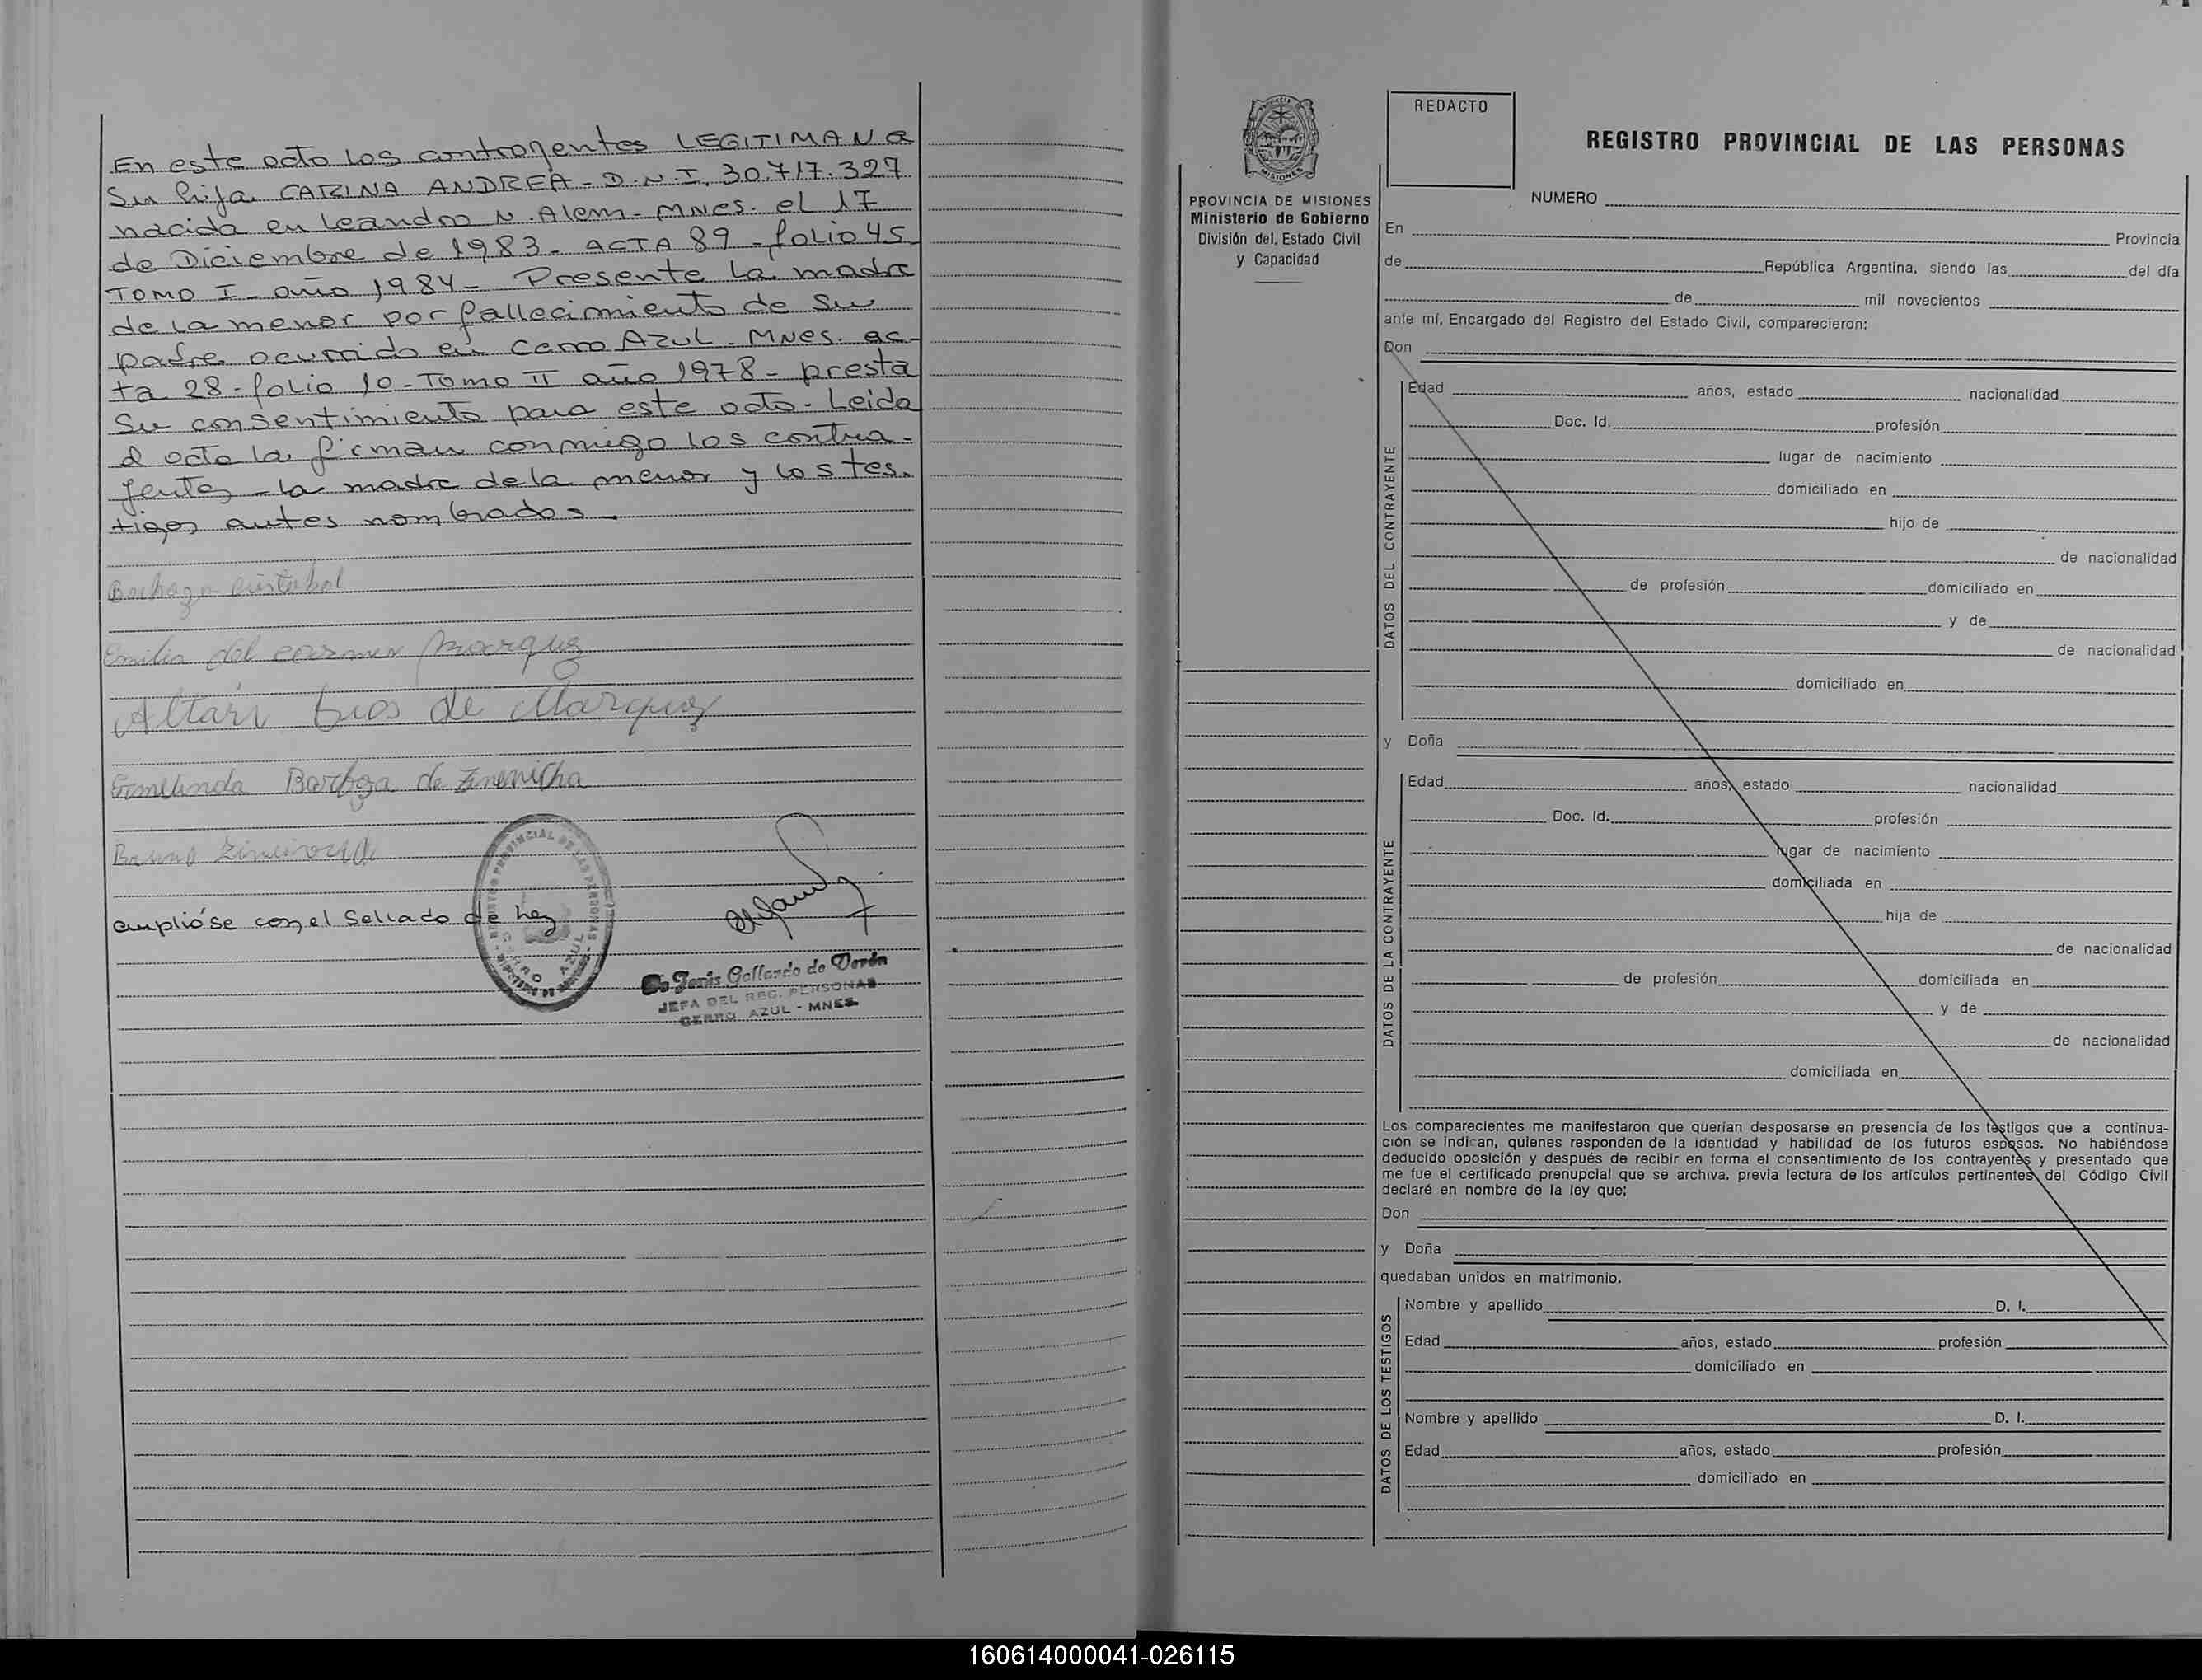 En este acto los contrayentes LEGITIMAN a
Su hija CARINA ANDREA - D.N.I. 30.717.327
nacida en Leandro N. Alem - MNES. el 17
de Diciembre de 1983 - ACTA 89 - folio 45
TOMO I - año 1984 - Presente la madre
de la menor por fallecimiento de su
padre ocurrido en Cerro Azul - MNES. ac-
ta 28 - folio 10 - Tomo II año 1978 - presta
Su consentimiento para este acto - Leida
el acta la firman conmigo los contra-
yentes - la madre de la menor y los tes-
tigos antes nombrados -
Emilia del carmen Marquez
de Marquez
Ermelinda Barboza de
Bruno
cumplióse con el Sellado de ley
REGISTRO PROVINCIAL DE LAS PERSONAS
CERRO AZUL
Jesús Gallardo de Verón
JEFA DEL REG. PERSONAS
CERRO AZUL - MNES.
PROVINCIA DE MISIONES
Ministerio de Gobierno
División del. Estado Civil
y Capacidad
REDACTO
REGISTRO PROVINCIAL DE LAS PERSONAS
NUMERO
En Provincia
de República Argentina, siendo las del día
de mil novecientos
ante mí, Encargado del Registro del Estado Civil, comparecieron:
Don
DATOS DEL CONTRAYENTE
Edad años, estado nacionalidad
Doc. Id. profesión
lugar de nacimiento
domiciliado en
hijo de
de nacionalidad
de profesión domiciliado en
y de
de nacionalidad
domiciliado en
y Doña
DATOS DE LA CONTRAYENTE
Edad años, estado nacionalidad
Doc. Id. profesión
lugar de nacimiento
domiciliada en
hija de
de nacionalidad
de profesión domiciliada en
y de
de nacionalidad
domiciliada en
Los comparecientes me manifestaron que querían desposarse en presencia de los testigos que a continua-
ción se indican, quienes responden de la identidad y habilidad de los futuros esposos. No habiéndose
deducido oposición y después de recibir en forma el consentimiento de los contrayentes y presentado que
me fue el certificado prenupcial que se archiva, previa lectura de los artículos pertinentes del Código Civil
declaré en nombre de la ley que;
Don
y Doña
quedaban unidos en matrimonio.
DATOS DE LOS TESTIGOS
Nombre y apellido D. I.
Edad años, estado profesión
domiciliado en
Nombre y apellido D. I.
Edad años, estado profesión
domiciliado en
160614000041-026115